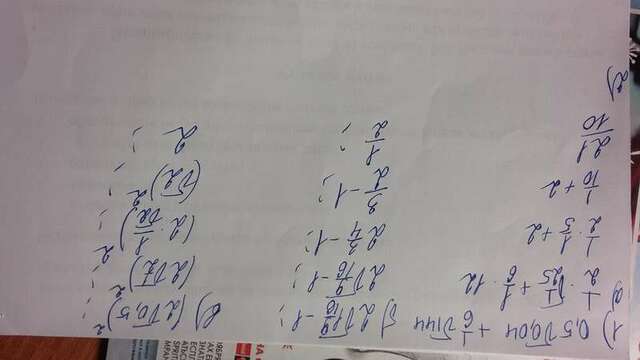 1) 0,5√0,04 + 1/6 √144
а) 1/2 · √1/25 + 1/6 · 12
1/2 · 1/5 + 2
1/10 + 2
2 1/10
2)
б) 2√1 9/16 - 1;
2√9/16 - 1;
2 3/4 - 1;
3/2 - 1;
1/2;
в) (2√0,5)²;
(2√1/2)²;
(2 · 1/√2)²;
(√2)²;
2;